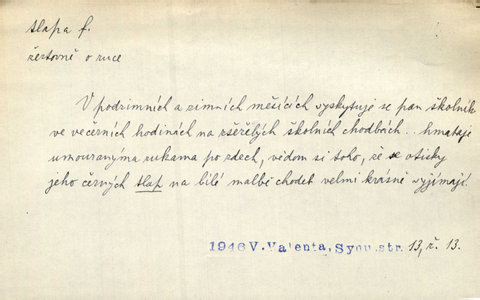 tlapa f.
žertovně o ruce
V podzimních a zimních měsících vyskytuje se pan školník
ve večerních hodinách na zšeřelých školních chodbách.. hmataje
umouranýma rukama po zdech, vědom si toho, že se otisky
jeho černých tlap na bílé malbě chodet velmi krásně vyjímají.
1946 V. Valenta, Synu.str. 13, ř. 13.